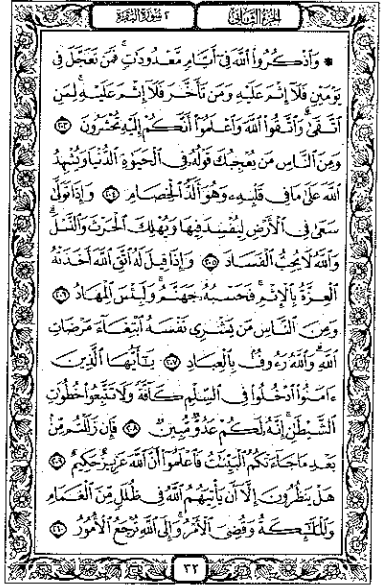 الجزء الثاني
٢ سورة البقرة
۞ وَٱذْكُرُوا۟ ٱللَّهَ فِىٓ أَيَّامٍ مَّعْدُودَٰتٍ ۚ فَمَن تَعَجَّلَ فِى
يَوْمَيْنِ فَلَآ إِثْمَ عَلَيْهِ وَمَن تَأَخَّرَ فَلَآ إِثْمَ عَلَيْهِ ۚ لِمَنِ
ٱتَّقَىٰ ۗ وَٱتَّقُوا۟ ٱللَّهَ وَٱعْلَمُوٓا۟ أَنَّكُمْ إِلَيْهِ تُحْشَرُونَ ٢٠٣
وَمِنَ ٱلنَّاسِ مَن يُعْجِبُكَ قَوْلُهُۥ فِى ٱلْحَيَوٰةِ ٱلدُّنْيَا وَيُشْهِدُ
ٱللَّهَ عَلَىٰ مَا فِى قَلْبِهِۦ وَهُوَ أَلَدُّ ٱلْخِصَامِ ٢٠٤ وَإِذَا تَوَلَّىٰ
سَعَىٰ فِى ٱلْأَرْضِ لِيُفْسِدَ فِيهَا وَيُهْلِكَ ٱلْحَرْثَ وَٱلنَّسْلَ ۗ
وَٱللَّهُ لَا يُحِبُّ ٱلْفَسَادَ ٢٠٥ وَإِذَا قِيلَ لَهُ ٱتَّقِ ٱللَّهَ أَخَذَتْهُ
ٱلْعِزَّةُ بِٱلْإِثْمِ ۚ فَحَسْبُهُۥ جَهَنَّمُ ۚ وَلَبِئْسَ ٱلْمِهَادُ ٢٠٦
وَمِنَ ٱلنَّاسِ مَن يَشْرِى نَفْسَهُ ٱبْتِغَآءَ مَرْضَاتِ
ٱللَّهِ ۗ وَٱللَّهُ رَءُوفٌۢ بِٱلْعِبَادِ ٢٠٧ يَٰٓأَيُّهَا ٱلَّذِينَ
ءَامَنُوا۟ ٱدْخُلُوا۟ فِى ٱلسِّلْمِ كَآفَّةً وَلَا تَتَّبِعُوا۟ خُطُوَٰتِ
ٱلشَّيْطَٰنِ ۚ إِنَّهُۥ لَكُمْ عَدُوٌّ مُّبِينٌ ٢٠٨ فَإِن زَلَلْتُم مِّنۢ
بَعْدِ مَا جَآءَتْكُمُ ٱلْبَيِّنَٰتُ فَٱعْلَمُوٓا۟ أَنَّ ٱللَّهَ عَزِيزٌ حَكِيمٌ ٢٠٩
هَلْ يَنظُرُونَ إِلَّآ أَن يَأْتِيَهُمُ ٱللَّهُ فِى ظُلَلٍ مِّنَ ٱلْغَمَامِ
وَٱلْمَلَٰٓئِكَةُ وَقُضِىَ ٱلْأَمْرُ ۚ وَإِلَى ٱللَّهِ تُرْجَعُ ٱلْأُمُورُ ٢١٠
٣٢